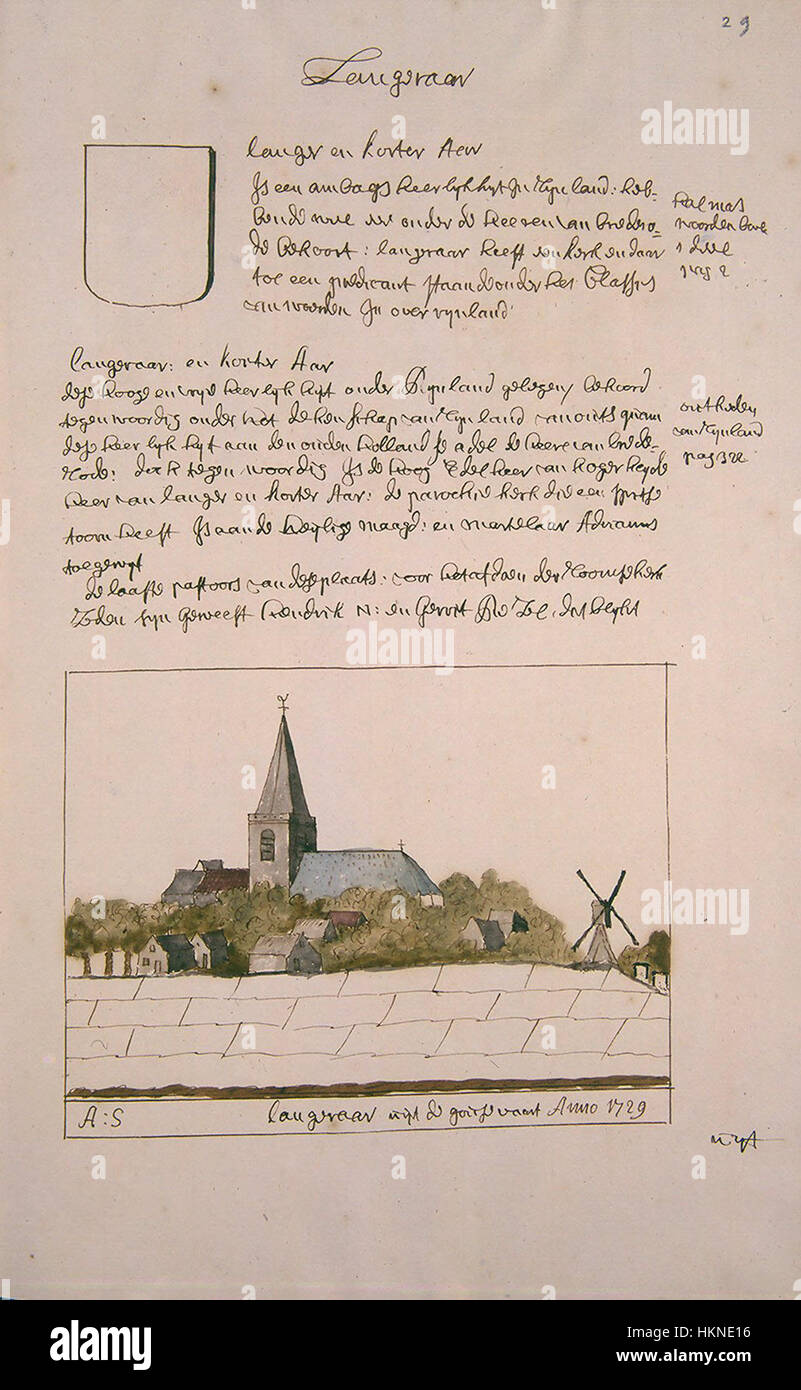 29
Langeraar
langer en korter Aar
Is een ambags heerlykhyt In Rynland: heb-
bende onder de heeren van bredero-
de behoort: langeraar heeft een kerk en daar
toe een predicant staande onder het Classis
van woerden In over rynland
halmas
woordenboek
1 deel
pag 2
langeraar: en korter Aar
dese hooge en vrye heerlykhyt onder Rynland gelegen, behoord
tegenwoordig onder het dekenschap van Rynland van outs quam
dese heerlykhyt aan den ouden hollandse adel de heere van brede-
rode: doch tegenwoordig Is de hoog Edel heer van
heer van langer en korter Aar: de parochie kerk die een spitse
toorn heeft Is aan de heylige maagd: en martelaar Adrianus
toegewyt
outheden
van rynland
pag 322
de laatste pastoors van dese plaats: voor het afdoen der roomse kerk
zeden syn geweest hendrik N: en Gerrit
A:S
langeraar uyt de goutse vaart Anno 1729
alamy
Image ID: HKNE16
www.alamy.com